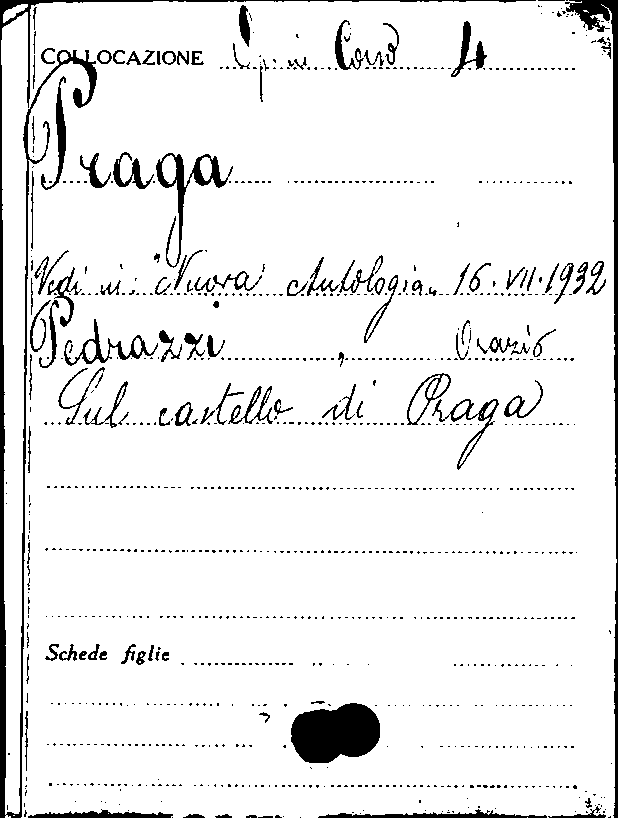 COLLOCAZIONE Op. in Corso 4
Praga
Vedi in: "Nuova Antologia„ 16.VII.1932
Pedrazzi , Orazio
Sul castello di Praga
Schede figlie